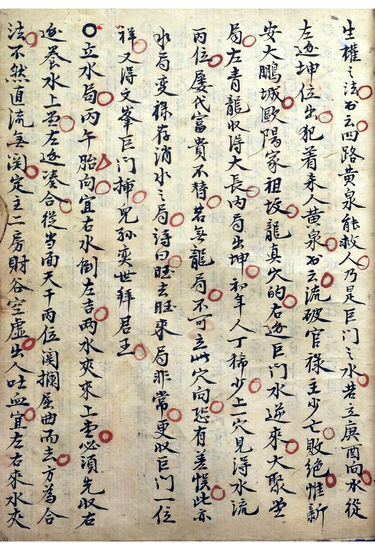 生權之法書云四路黃泉能救人乃是巨門之水若立庚酉向水從
左邊坤位出犯着来人黃泉書云流破官祿主少亡敗絕惟新
安大鵬城歐陽家祖坟龍真穴的右邊巨門水逆來大聚堂
局左青龍收得大長內局出坤初年人丁稀少上一穴見得水流
丙位屡代富貴不替若無龍局不可立此穴向恐有差悮此亦
水局变祿存消水之局詩曰旺去旺来局非常更收巨門一位
祥又得文筆巨門挿兒孫奕世拜君王
立水局丙午胎向宜右水倒左吉两水夾來上堂必須先收右
邊养水上堂左邊凑合從当面天干丙位関攔屈曲而去方為合
法不然直流無関定主二房財谷空虛出人吐血宜左右來水夾